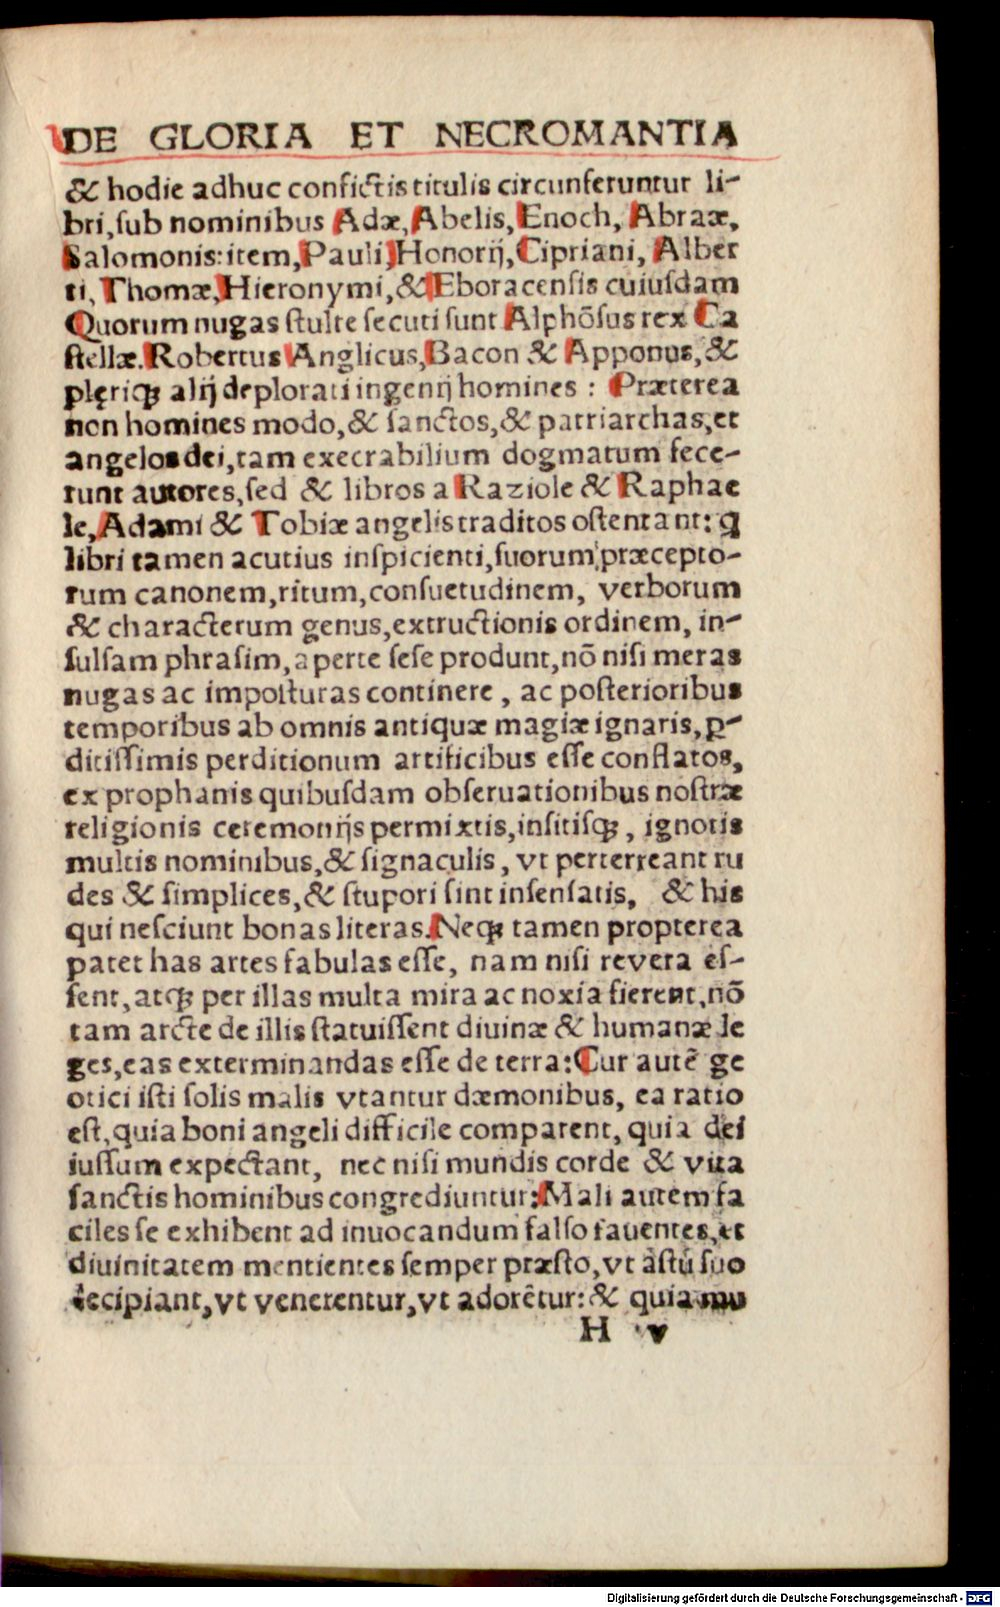 DE GLORIA ET NECROMANTIA
& hodie adhuc confictis titulis circunferuntur li-
bri, sub nominibus Adæ, Abelis, Enoch, Abraæ,
Salomonis: item, Pauli, Honorij, Cipriani, Alber
ti, Thomæ, Hieronymi, & Eboracensis cuiusdam
Quorum nugas stulte secuti sunt Alphõsus rex Ca
stellæ. Robertus Anglicus, Bacon & Apponus, &
plęriqꝫ alij deplorati ingenij homines : Præterea
non homines modo, & sanctos, & patriarchas, et
angelos dei, tam execrabilium dogmatum fece-
runt autores, sed & libros a Raziole & Raphae
le, Adami & Tobiæ angelis traditos ostentant: q
libri tamen acutius inspicienti, suorum præcepto-
rum canonem, ritum, consuetudinem, verborum
& characterum genus, extructionis ordinem, in-
sulsam phrasim, aperte sese produnt, nõ nisi meras
nugas ac imposturas continere, ac posterioribus
temporibus ab omnis antiquæ magiæ ignaris, ꝑ-
ditissimis perditionum artificibus esse conflatos,
ex prophanis quibusdam obseruationibus nostræ
religionis ceremonijs permixtis, insitisqꝫ, ignotis
multis nominibus, & signaculis, vt perterreant ru
des & simplices, & stupori sint insensatis, & his
qui nesciunt bonas literas. Neqꝫ tamen propterea
patet has artes fabulas esse, nam nisi revera es-
sent, atqꝫ per illas multa mira ac noxia fierent, nõ
tam arcte de illis statuissent diuinæ & humanæ le
ges, eas exterminandas esse de terra: Cur autẽ ge
otici isti solis malis vtantur dæmonibus, ea ratio
est, quia boni angeli difficile comparent, quia dei
iussum expectant, nec nisi mundis corde & vita
sanctis hominibus congrediuntur: Mali autem fa
ciles se exhibent ad inuocandum falso fauentes, et
diuinitatem mentientes semper præsto, vt astu suo
decipiant, vt venerentur, vt adorẽtur: & quia mu
H v
Digitalisierung gefördert durch die Deutsche Forschungsgemeinschaft - DFG